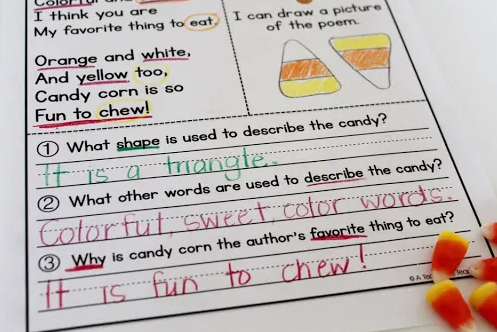 Colorful and
I think you are
My favorite thing to eat
Orange and white,
And yellow too,
Candy corn is so
Fun to chew!
I can draw a picture
of the poem.
1 What shape is used to describe the candy?
It is a triangle.
2 What other words are used to describe the candy?
Colorful, sweet, color words.
3 Why is candy corn the author's favorite thing to eat?
It is fun to chew!
© A